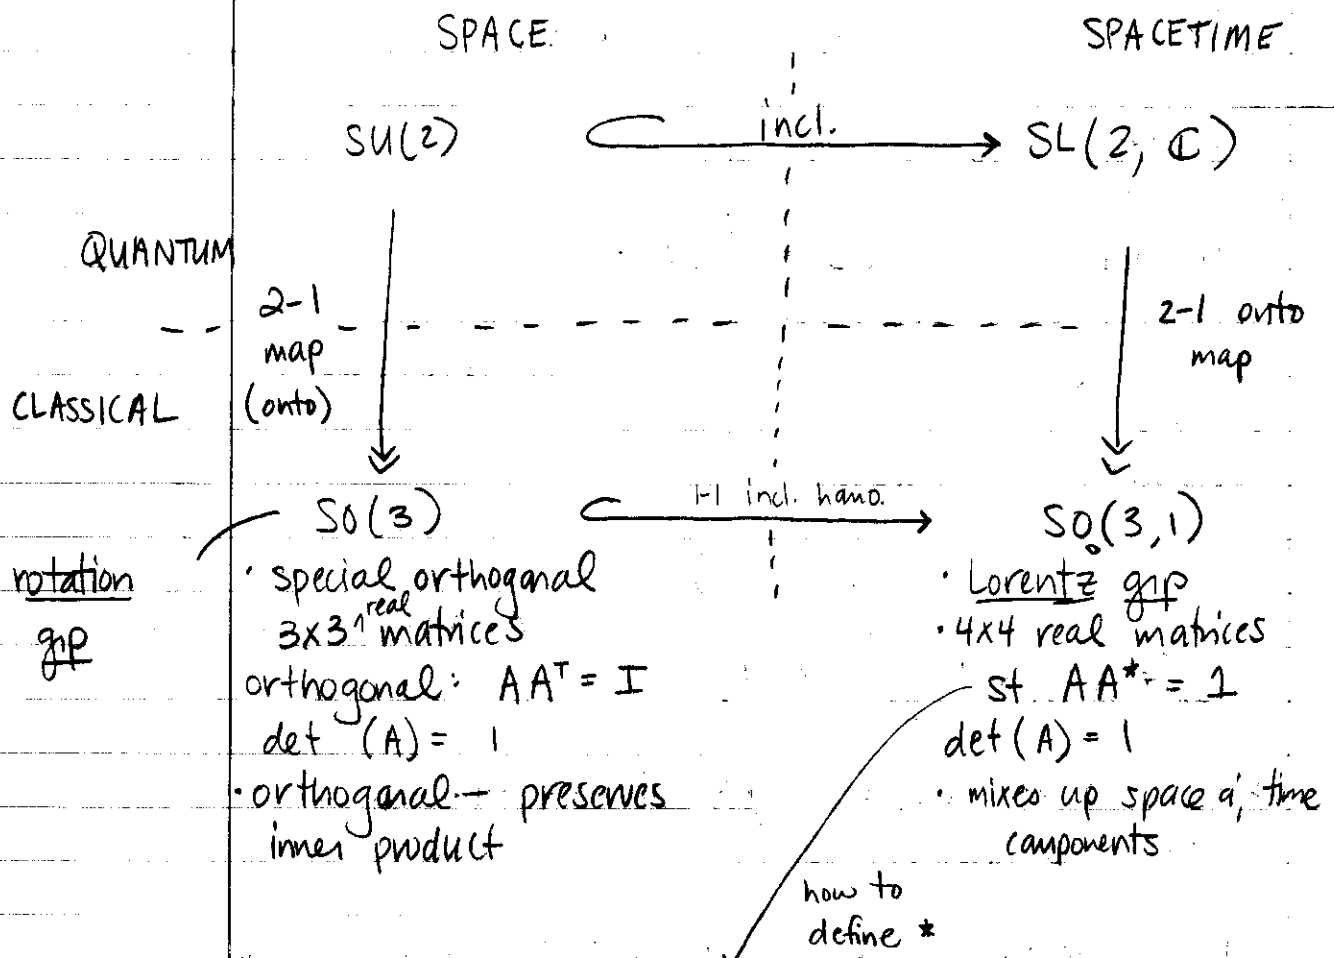 SPACE SPACETIME
SU(2) incl. SL(2, ℂ)
QUANTUM
2-1
map
(onto)
2-1 onto
map
CLASSICAL
SO(3) 1-1 incl. homo. SO₀(3,1)
rotation
grp
· special orthogonal
3x3 ^real matrices
orthogonal: AAᵀ = I
det (A) = 1
· orthogonal — preserves
inner product
· Lorentz grp
· 4x4 real matrices
st AA* = 1
det(A) = 1
· mixes up space &, time
components
how to
define *